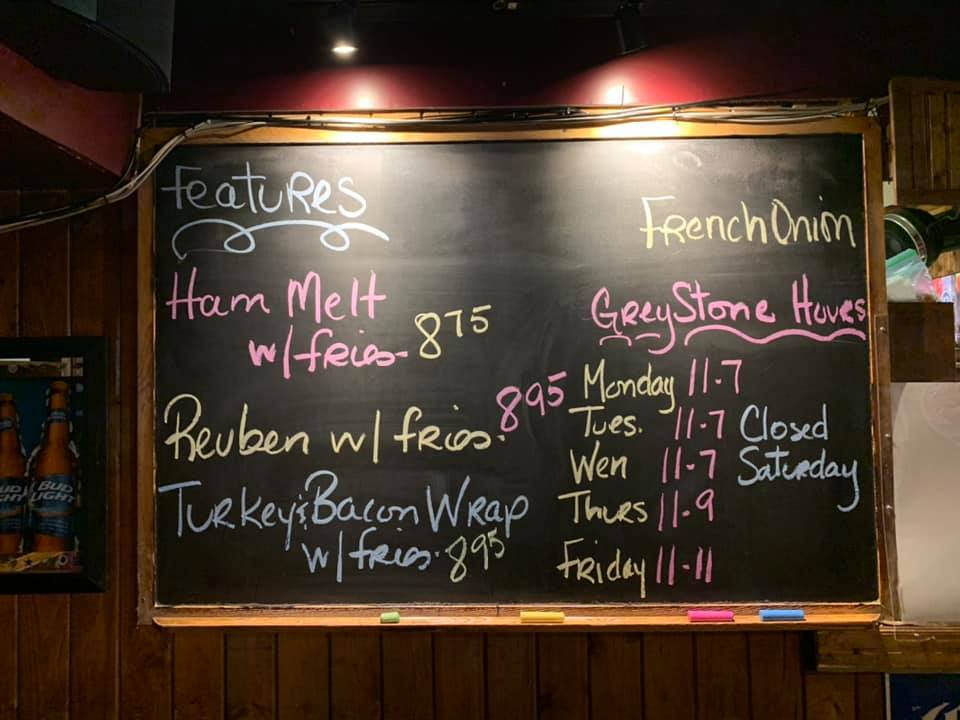 Features
Ham Melt
w/fries. 875
Reuben w/ fries. 895
Turkey & Bacon Wrap
w/fries. 895
French Onion
GreyStone Hours
Monday 11-7
Tues. 11-7
Wen 11-7
Thurs 11-9
Friday 11-11
Closed
Saturday
BUD
LIGHT
BUD
LIGHT